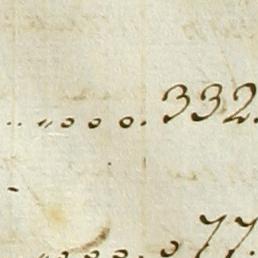 .. „ o o o. 332.
-
„ o o o. o 77.